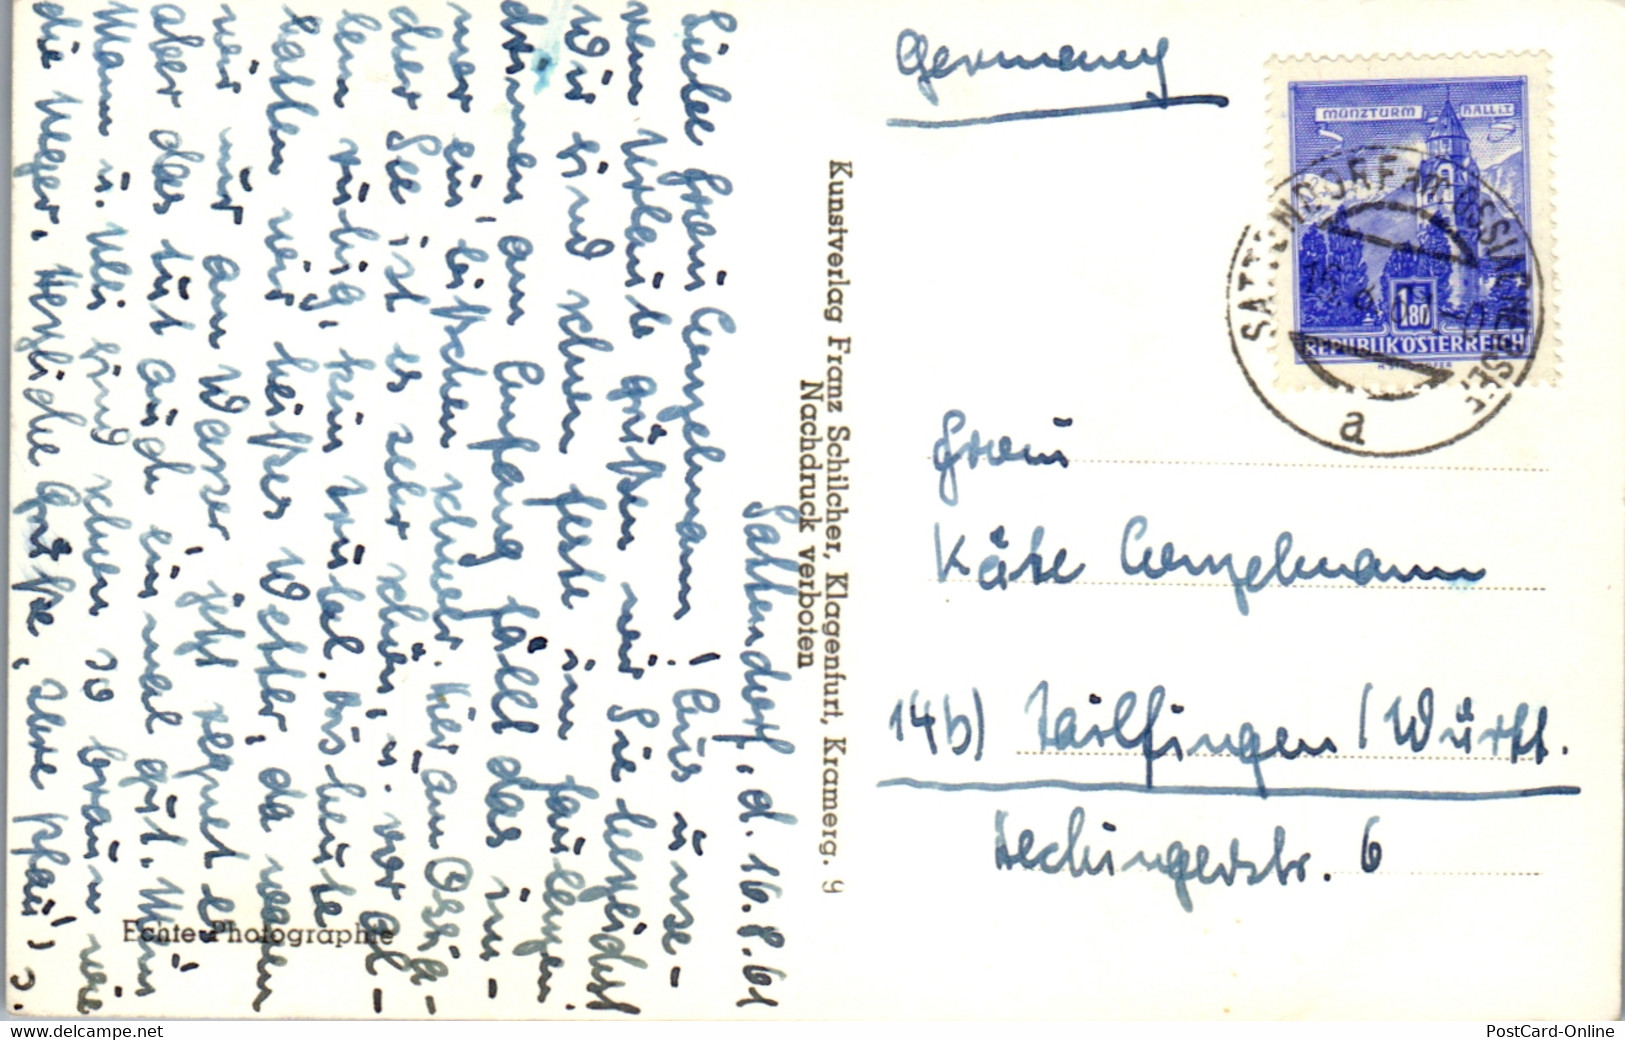 Sattendorf, d. 16.8.61
Liebe Frau Conzelmann! Aus unse-
rem Urlaub grüßen wir Sie herzlichst
Wir sind schon feste im faulenzen
drinnen am Anfang fällt das im-
mer ein bißchen schwer. Hier am Ossia-
cher See ist es sehr schön, u. vor al-
lem ruhig, kein Trubel. Bis heute
hatten wir heißes Wetter, da waren
wir nur am Wasser, jetzt regnet es
aber das tut auch einmal gut. Mein
Mann u. Uli sind schon so braun wie
die Neger. Herzliche Grüße, Ihre Pfau's
Echte Photographie
Kunstverlag Franz Schilcher, Klagenfurt, Kramerg. 9
Nachdruck verboten
Germany
MÜNZTURM HALL i.T.
S 1.80
REPUBLIK ÖSTERREICH
SATTENDORF am OSSIACHERSEE
a
Frau
Käte Conzelmann
14b) Tailfingen/Württ.
Hechingerstr. 6
PostCard-Online
www.delcampe.net